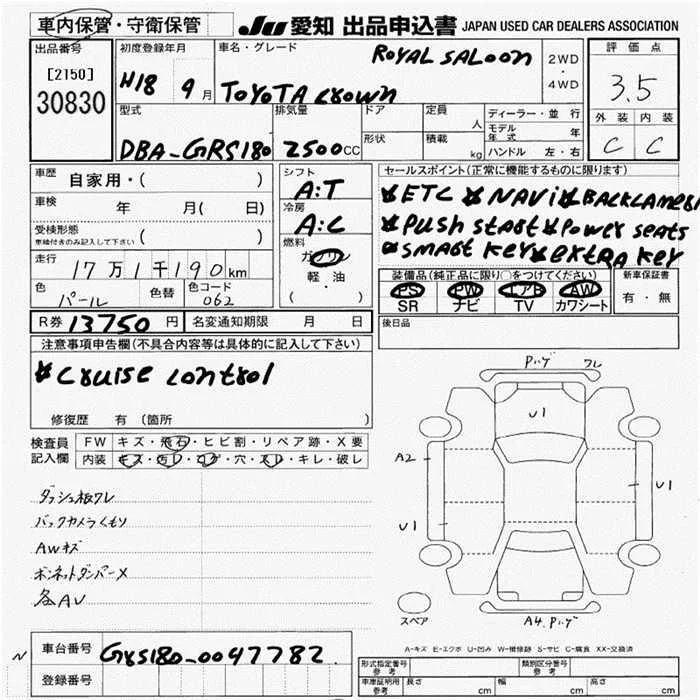 車内保管・守衛保管 JU 愛知 出品申込書 JAPAN USED CAR DEALERS ASSOCIATION
出品番号 [2150] 30830
初度登録年月 H18 9月
車名・グレード ROYAL SALOON TOYOTA CROWN
2WD・4WD
評価点 3.5
外装 内装
C C
型式 DBA-GRS180
排気量 2500CC
ドア 形状
定員 人
積載 kg
ディーラー・並行
モデル年式 年
ハンドル 左・右
車歴 自家用・( )
車検 年 月( 日)
受検形態 車検付きのみ記入して下さい ( )
走行 17万1千190km
色 パール 色替 色コード 062
シフト A:T
冷房 A:C
燃料 ガソリン
軽・油
( )
セールスポイント(正常に機能するものに限り)
*ETC *NAVi *BACKCAMERA
*PUSH START *POWER SEATS
*SMART KEY *EXTRA KEY
装備品(純正品に限り〇をつけてください) 新車保証書
PS PW エアB AW 有・無
SR ナビ TV カワシート
R券 13750円 名変通知期限 月 日
後日品
注意事項申告欄(不具合内容等は具体的に記入して下さい)
*Cruise control
修復歴 有 (箇所 )
検査員記入欄
FW キズ・飛石・ヒビ割・リペア跡・X要
内装 キズ・汚レ・コゲ・穴・スレ・キレ・破レ
ダッシュ板ワレ
バックカメラくもり
AWキズ
ボンネットダンパーX
各AU
Pハゲ ワレ
U1
A2
U1
U1
スペア
A4.Pハゲ
A-キズ E-エクボ U-凹み W-補修跡 S-サビ C-腐食 XX-交換済
N 車台番号 GRS180-0047782
登録番号
形式指定番号 参考 類別区分番号 参考
車庫証明用 参考 長さ cm 幅 cm 高さ cm